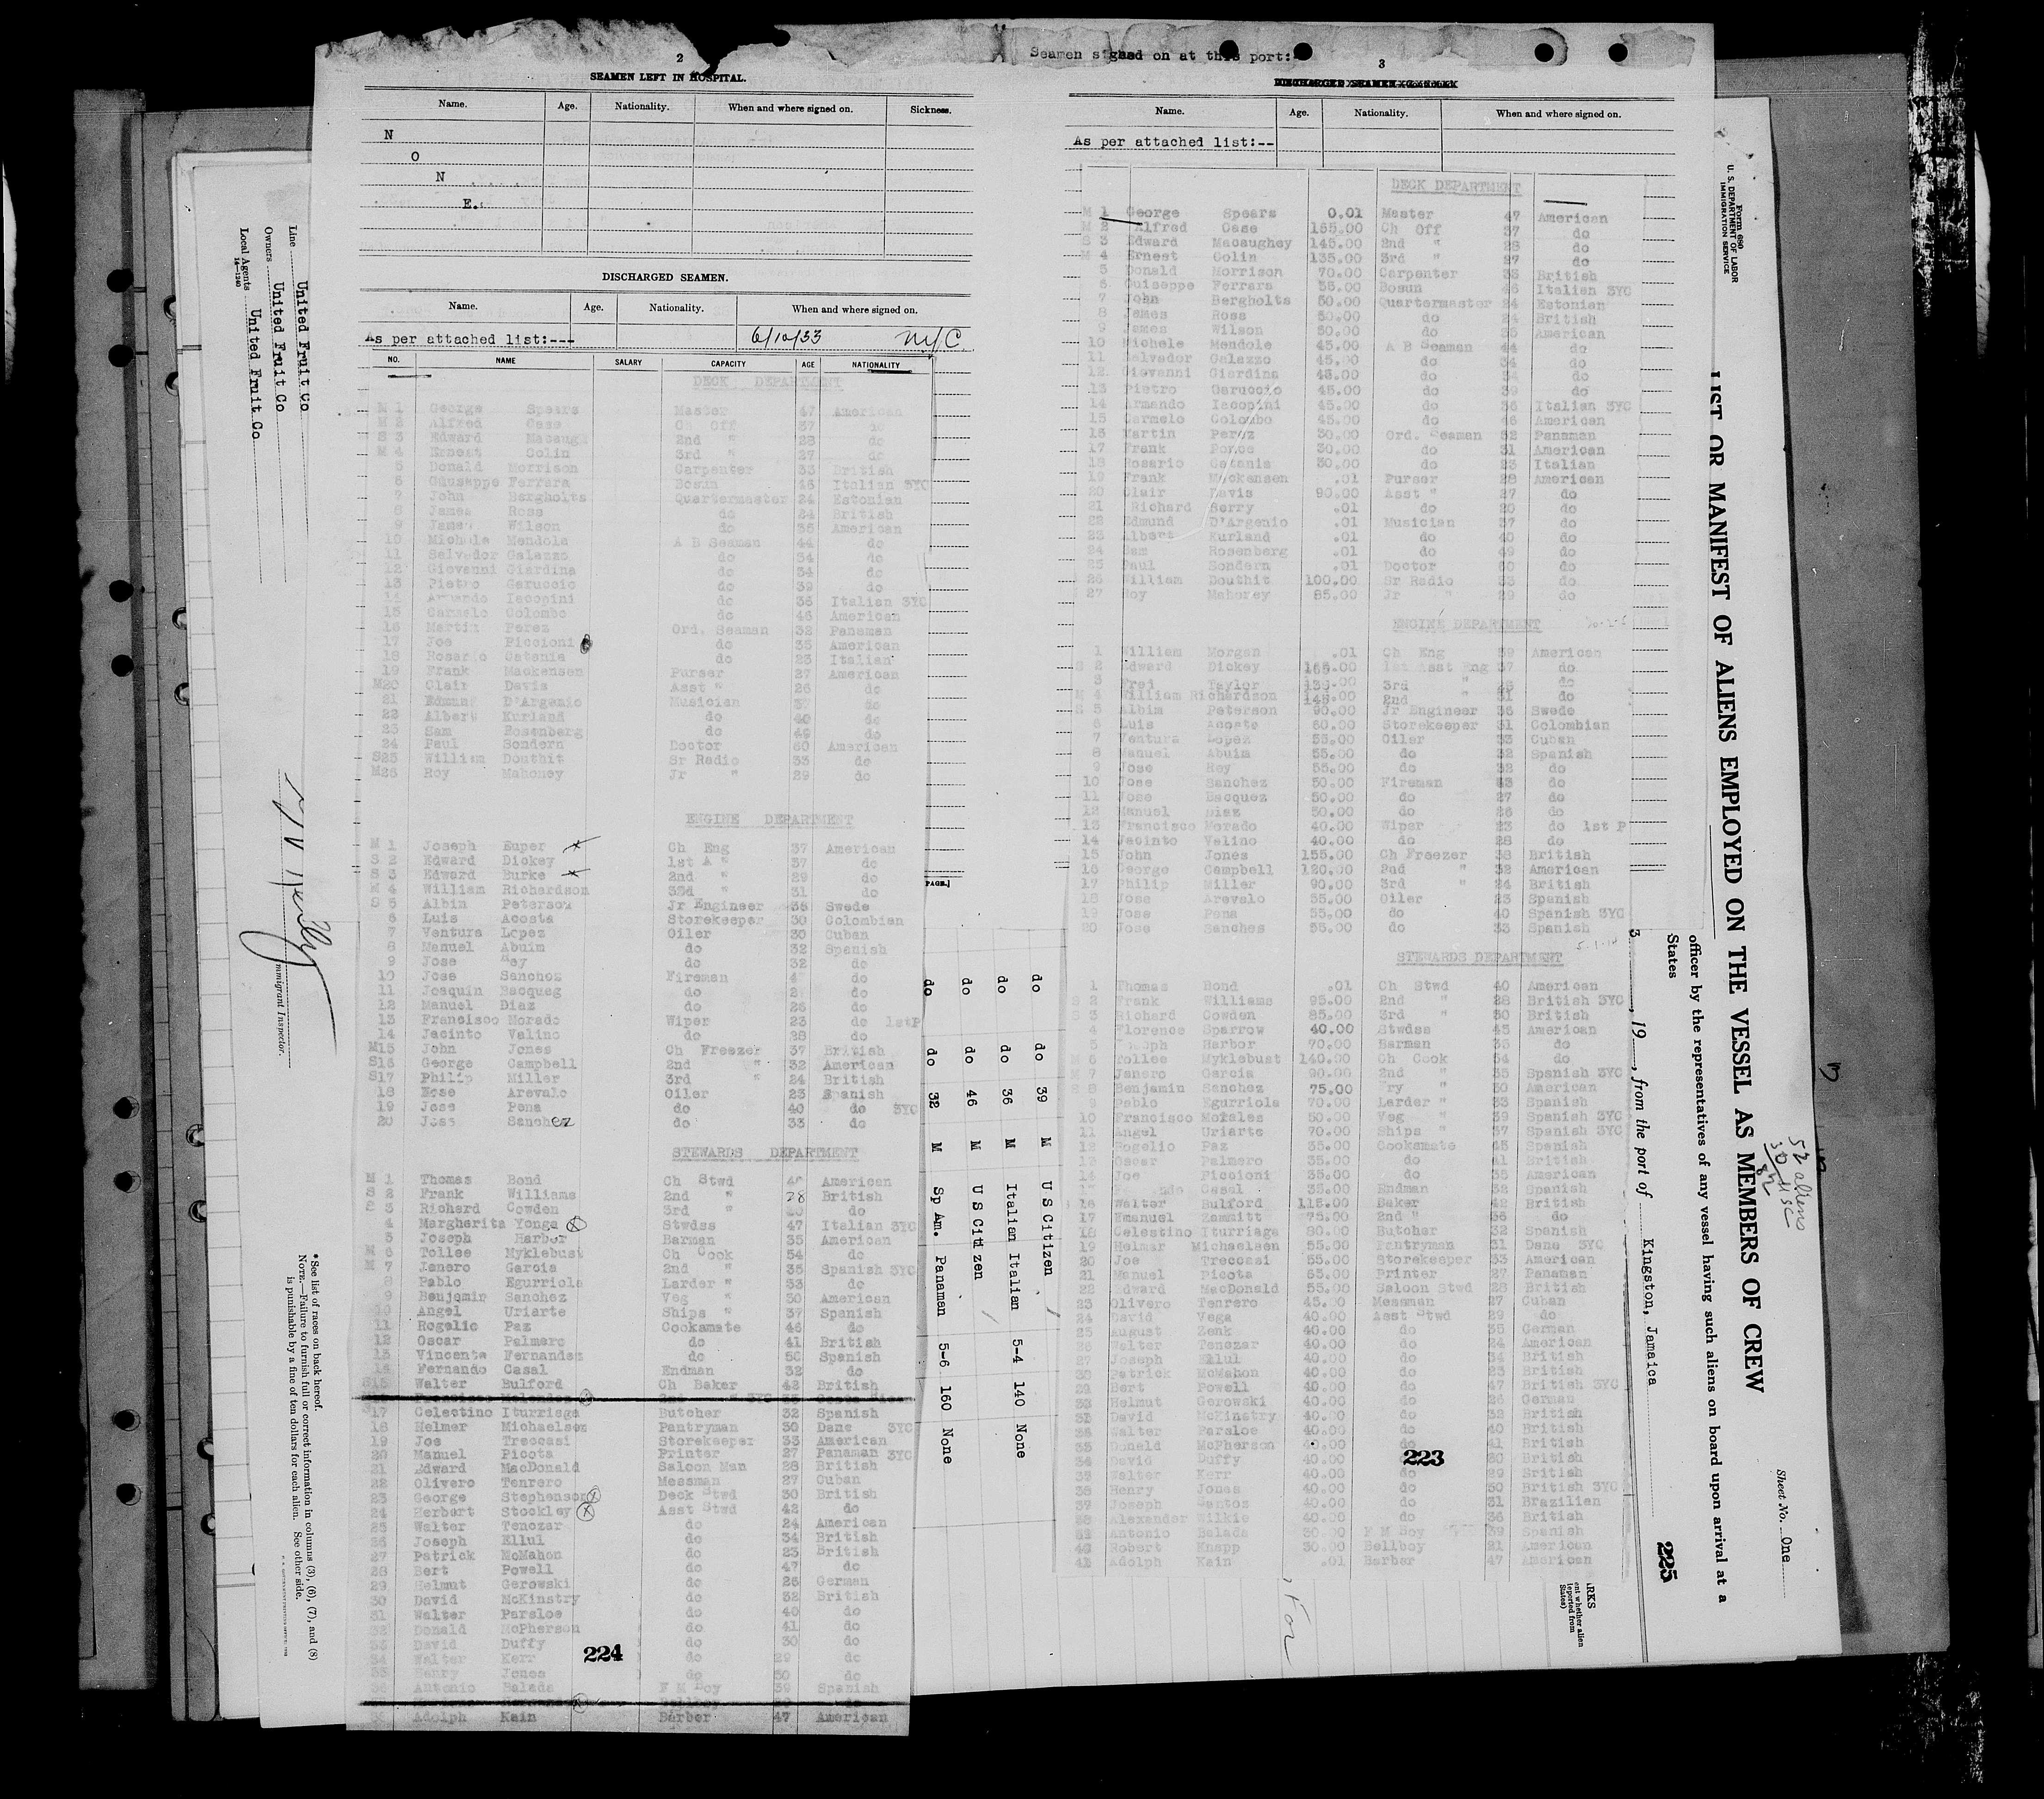 2
SEAMEN LEFT IN HOSPITAL.
Name. Age. Nationality. When and where signed on. Sickness.
N
O
N
E.
DISCHARGED SEAMEN.
Name. Age. Nationality. When and where signed on.
As per attached list:---
6/10/33 NYC.
NO. NAME SALARY CAPACITY AGE NATIONALITY
DECK DEPARTMENT
M 1 George Spears Master 47 American
M 2 Alfred Case Ch Off 37 do
S 3 Edward 2nd " 28 do
M 4 Ernest Colin 3rd " 27 do
5 Donald Morrison Carpenter 33 British
6 Giuseppe Ferrara Bosun 46 Italian 3YC
7 John Bergholts Quartermaster 24 Estonian
8 James Ross do 24 British
9 James Wilson do 35 American
10 Michele Mendola A B Seaman 44 do
11 Salvador Galazzo do 34 do
12 Giovanni Giardina do 34 do
13 Pietro Garuccio do 39 do
14 Armando Iacopini do 36 Italian 3YC
15 Carmelo Colombo do 46 American
16 Martin Perez Ord. Seaman 32 Panaman
17 Joe Piccioni do 35 American
18 Rosario Catania do 23 Italian
19 Frank Mackensen Purser 27 American
M20 Clair Davis Asst " 26 do
21 Edmund D'Argenio Musician 37 do
22 Albert Kurland do 40 do
23 Sam Rosenberg do 49 do
24 Paul Sondern Doctor 60 American
S25 William Douthit Sr Radio 33 do
M26 Roy Mahoney Jr " 29 do
ENGINE DEPARTMENT
M 1 Joseph Euper Ch Eng 37 American
S 2 Edward Dickey 1st A " 37 do
S 3 Edward Burke 2nd " 29 do
M 4 William Richardson 3rd " 31 do
S 5 Albin Peterson Jr Engineer 35 Swede
6 Luis Acosta Storekeeper 30 Colombian
7 Ventura Lopez Oiler 30 Cuban
8 Manuel Abuim do 32 Spanish
9 Jose Rey do 32 do
10 Jose Sanchez Fireman do
11 Joaquin Bacqueg do 27 do
12 Manuel Diaz do 26 do
13 Francisco Morado Wiper 23 do 1stP
14 Jacinto Valino do 28 do
M15 John Jones Ch Freezer 37 British
S16 George Campbell 2nd " 32 American
S17 Philip Miller 3rd " 24 British
18 Jose Arevalo Oiler 23 Spanish
19 Jose Pena do 40 do 3YC
20 Jose Sanchez do 33 do
STEWARDS DEPARTMENT
M 1 Thomas Bond Ch Stwd 40 American
S 2 Frank Williams 2nd " 28 British
S 3 Richard Cowden 3rd " do
4 Margherita Yonge Stwdss 47 Italian 3YC
5 Joseph Harbor Barman 35 American
M 6 Tollee Myklebust Ch Cook 54 do
M 7 Janero Garcia 2nd " 35 Spanish 3YC
8 Pablo Egurriola Larder " 33 do
9 Benjamin Sanchez Veg " 30 American
10 Angel Uriarte Ships " 37 Spanish
11 Rogelio Paz Cooksmate 46 do
12 Oscar Palmero do 41 British
13 Vincente Fernandez do 50 Spanish
14 Fernando Casal Endman 32 do
S15 Walter Bulford Ch Baker 42 British
17 Celestino Iturriaga Butcher 32 Spanish
18 Helmer Michaelsen Pantryman 30 Dane 3YC
19 Joe Treccasi Storekeeper 33 American
20 Manuel Picota Printer 27 Panaman 3YC
21 Edward MacDonald Saloon Man 28 British
22 Olivero Tenrero Messman 27 Cuban
23 George Stephenson Deck Stwd 30 British
24 Herbert Stockley Asst Stwd 42 do
25 Walter Tenczar do 24 American
26 Joseph Ellul do 34 British
27 Patrick McMahon do 23 British
28 Bert Powell do 47 do
29 Helmut Gerowski do 25 German
30 David McKinstry do 32 British
31 Walter Parsloe do 40 do
32 Donald McPherson do 41 do
33 David Duffy do 30 do
34 Walter Kerr do 29 do
35 Henry Jones do 50 do
36 Antonio Balada F M Boy 39 Spanish
38 Adolph Kain Barber 47 American
224
Seamen signed on at this port:
3
Name. Age. Nationality. When and where signed on.
As per attached list:--
DECK DEPARTMENT
M 1 George Spears 0.01 Master 47 American
M 2 Alfred Case 165.00 Ch Off 37 do
S 3 Edward Macaughey 145.00 2nd " 28 do
M 4 Ernest Colin 135.00 3rd " 27 do
5 Donald Morrison 70.00 Carpenter 33 British
6 Guiseppe Ferrara 55.00 Bosun 46 Italian 3YC
7 John Bergholts 50.00 Quartermaster 24 Estonian
8 James Ross 50.00 do 24 British
9 James Wilson 50.00 do 35 American
10 Michele Mendole 45.00 A B Seaman 44 do
11 Salvador Galazzo 45.00 do 34 do
12 Giovanni Giardina 45.00 do 34 do
13 Pietro Garuccio 45.00 do 39 do
14 Armando Iacopini 45.00 do 36 Italian 3YC
15 Carmelo Colombo 45.00 do 46 American
16 Martin Perez 30.00 Ord. Seaman 32 Panaman
17 Frank Ponce 30.00 do 31 American
18 Rosario Catania 30.00 do 23 Italian
19 Frank Mackensen .01 Purser 28 American
20 Clair Davis 90.00 Asst " 27 do
21 Richard Berry .01 do 20 do
22 Edmund D'Argenio .01 Musician 37 do
23 Albert Kurland .01 do 40 do
24 Sam Rosenberg .01 do 49 do
25 Paul Sondern .01 Doctor 60 do
26 William Douthit 100.00 Sr Radio 33 do
27 Roy Mahoney 85.00 Jr " 29 do
ENGINE DEPARTMENT
1 William Morgan .01 Ch Eng 39 American
S 2 Edward Dickey 165.00 1st Asst Eng 37 do
3 Taylor 3rd " do
M 4 William Richardson 145.00 2nd " 31 do
S 5 Albin Peterson 90.00 Jr Engineer 36 Swede
6 Luis Acosta 60.00 Storekeeper 31 Colombian
7 Ventura Lopez 55.00 Oiler 33 Cuban
8 Manuel Abuim 55.00 do 32 Spanish
9 Jose Rey 55.00 do 32 do
10 Jose Sanchez 50.00 Fireman 43 do
11 Jose Bacquez 50.00 do 27 do
12 Manuel Diaz 50.00 do 26 do
13 Francisco Morado 40.00 Wiper 23 do 1st P
14 Jacinto Valino 40.00 do 28 do
15 John Jones 155.00 Ch Freezer 38 British
16 George Campbell 120.00 2nd " 32 American
17 Philip Miller 90.00 3rd " 24 British
18 Jose Arevalo 55.00 Oiler 23 Spanish
19 Jose Pena 55.00 do 40 Spanish 3YC
20 Jose Sanches 55.00 do 33 Spanish
STEWARDS DEPARTMENT
1 Thomas Bond .01 Ch Stwd 40 American
S 2 Frank Williams 95.00 2nd " 28 British 3YC
S 3 Richard Cowden 85.00 3rd " 30 British
4 Florence Sparrow 40.00 Stwdss 45 American
5 Joseph Harbor 70.00 Barman 35 do
M 6 Tollee Myklebust 140.00 Ch Cook 54 do
M 7 Janero Garcia 90.00 2nd " 35 Spanish 3YC
S 8 Benjamin Sanchez 75.00 "ry " 30 American
9 Pablo Egurriola 70.00 Larder " 33 Spanish
10 Francisco Morales 50.00 Veg " 39 Spanish 3YC
11 Angel Uriarte 70.00 Ships " 37 Spanish 3YC
12 Rogelio Paz 35.00 Cooksmate 45 Spanish
13 Oscar Palmero 35.00 do 41 British
14 Joe Piccioni 35.00 do 35 American
Casal 35.00 Endman 32 Spanish
16 Walter Bulford 115.00 Baker 42 British
17 Emanuel Zammitt 75.00 2nd " do
18 Celestino Iturriaga 80.00 Butcher 32 Spanish
19 Helmar Michaelsen 55.00 Pantryman 31 Dane 3YC
20 Joe Treccasi 55.00 Storekeeper 33 American
21 Manuel Picota 65.00 Printer 27 Panaman
22 Edward MacDonald 55.00 Saloon Stwd 28 British
23 Olivero Tenrero 45.00 Messman 27 Cuban
24 David Vega 40.00 Asst Stwd 29 do
25 August Zenk 40.00 do 35 German
26 Walter Tenczar 40.00 do 24 American
27 Joseph Ellul 40.00 do 34 British
28 Patrick McMahon 40.00 do 23 British
29 Bert Powell 40.00 do 47 British 3YC
30 Helmut Gerowski 40.00 do 26 German
31 David McKinstry 40.00 do 32 British
32 Walter Parsloe 40.00 do 40 British
33 Donald McPherson 40.00 do 41 British
34 David Duffy 40.00 do 30 British
35 Walter Kerr 40.00 do 29 British
36 Henry Jones 40.00 do 50 British 3YC
37 Joseph Santos 40.00 do 31 Brazilian
38 Alexander Wilkie 40.00 do 36 British
Antonio Balada 30.00 F M Boy 39 Spanish
Robert Knapp 30.00 Bellboy 21 American
Adolph Kain .01 Barber 47 American
223
Line United Fruit Co
Owners United Fruit Co
Local Agents United Fruit Co
14-1240
Immigrant Inspector.
*See list of races on back hereof.
NOTE.—Failure to furnish full or correct information in columns (3), (6), (7), and (8)
is punishable by a fine of ten dollars for each alien. See other side.
PAGE.]
do do 39 M U S Citizen
do do 36 M Italian Italian 5-4 140 None
do do 46 M U S Citizen
do do 32 M Sp Am. Panaman 5-6 160 None
Form 680
U. S. DEPARTMENT OF LABOR
IMMIGRATION SERVICE
LIST OR MANIFEST OF ALIENS EMPLOYED ON THE VESSEL AS MEMBERS OF CREW
officer by the representatives of any vessel having such aliens on board upon arrival at a
States
3, 19, from the port of Kingston, Jamaica
Sheet No. One
52 aliens
30 USC
82
225